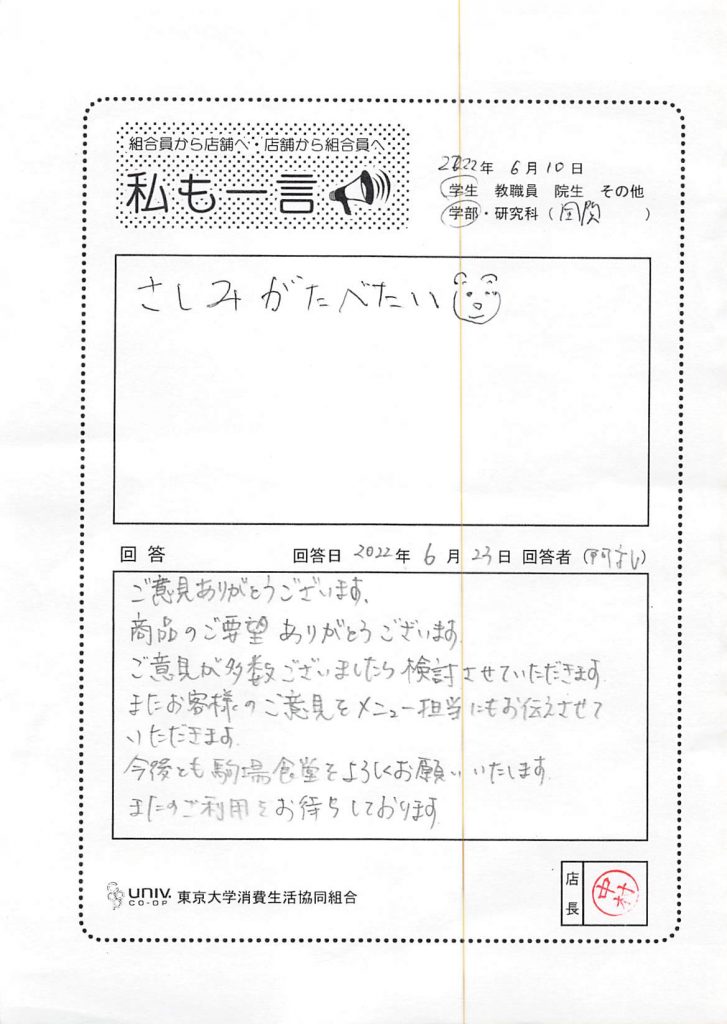 組合員から店舗へ・店舗から組合員へ
私も一言
2022年 6月10日
学生 教職員 院生 その他
学部・研究科( )
さしみがたべたい
回答 回答日 2022年 6月 23日 回答者
ご意見ありがとうございます、
商品のご要望ありがとうございます
ご意見が多数ございましたら検討させていただきます
またお客様のご意見をメニュー担当にもお伝えさせて
いただきます
今後とも駒場食堂をよろしくお願いいたします
またのご利用をお待ちしております
UNIV. CO-OP 東京大学消費生活協同組合
店長 中村